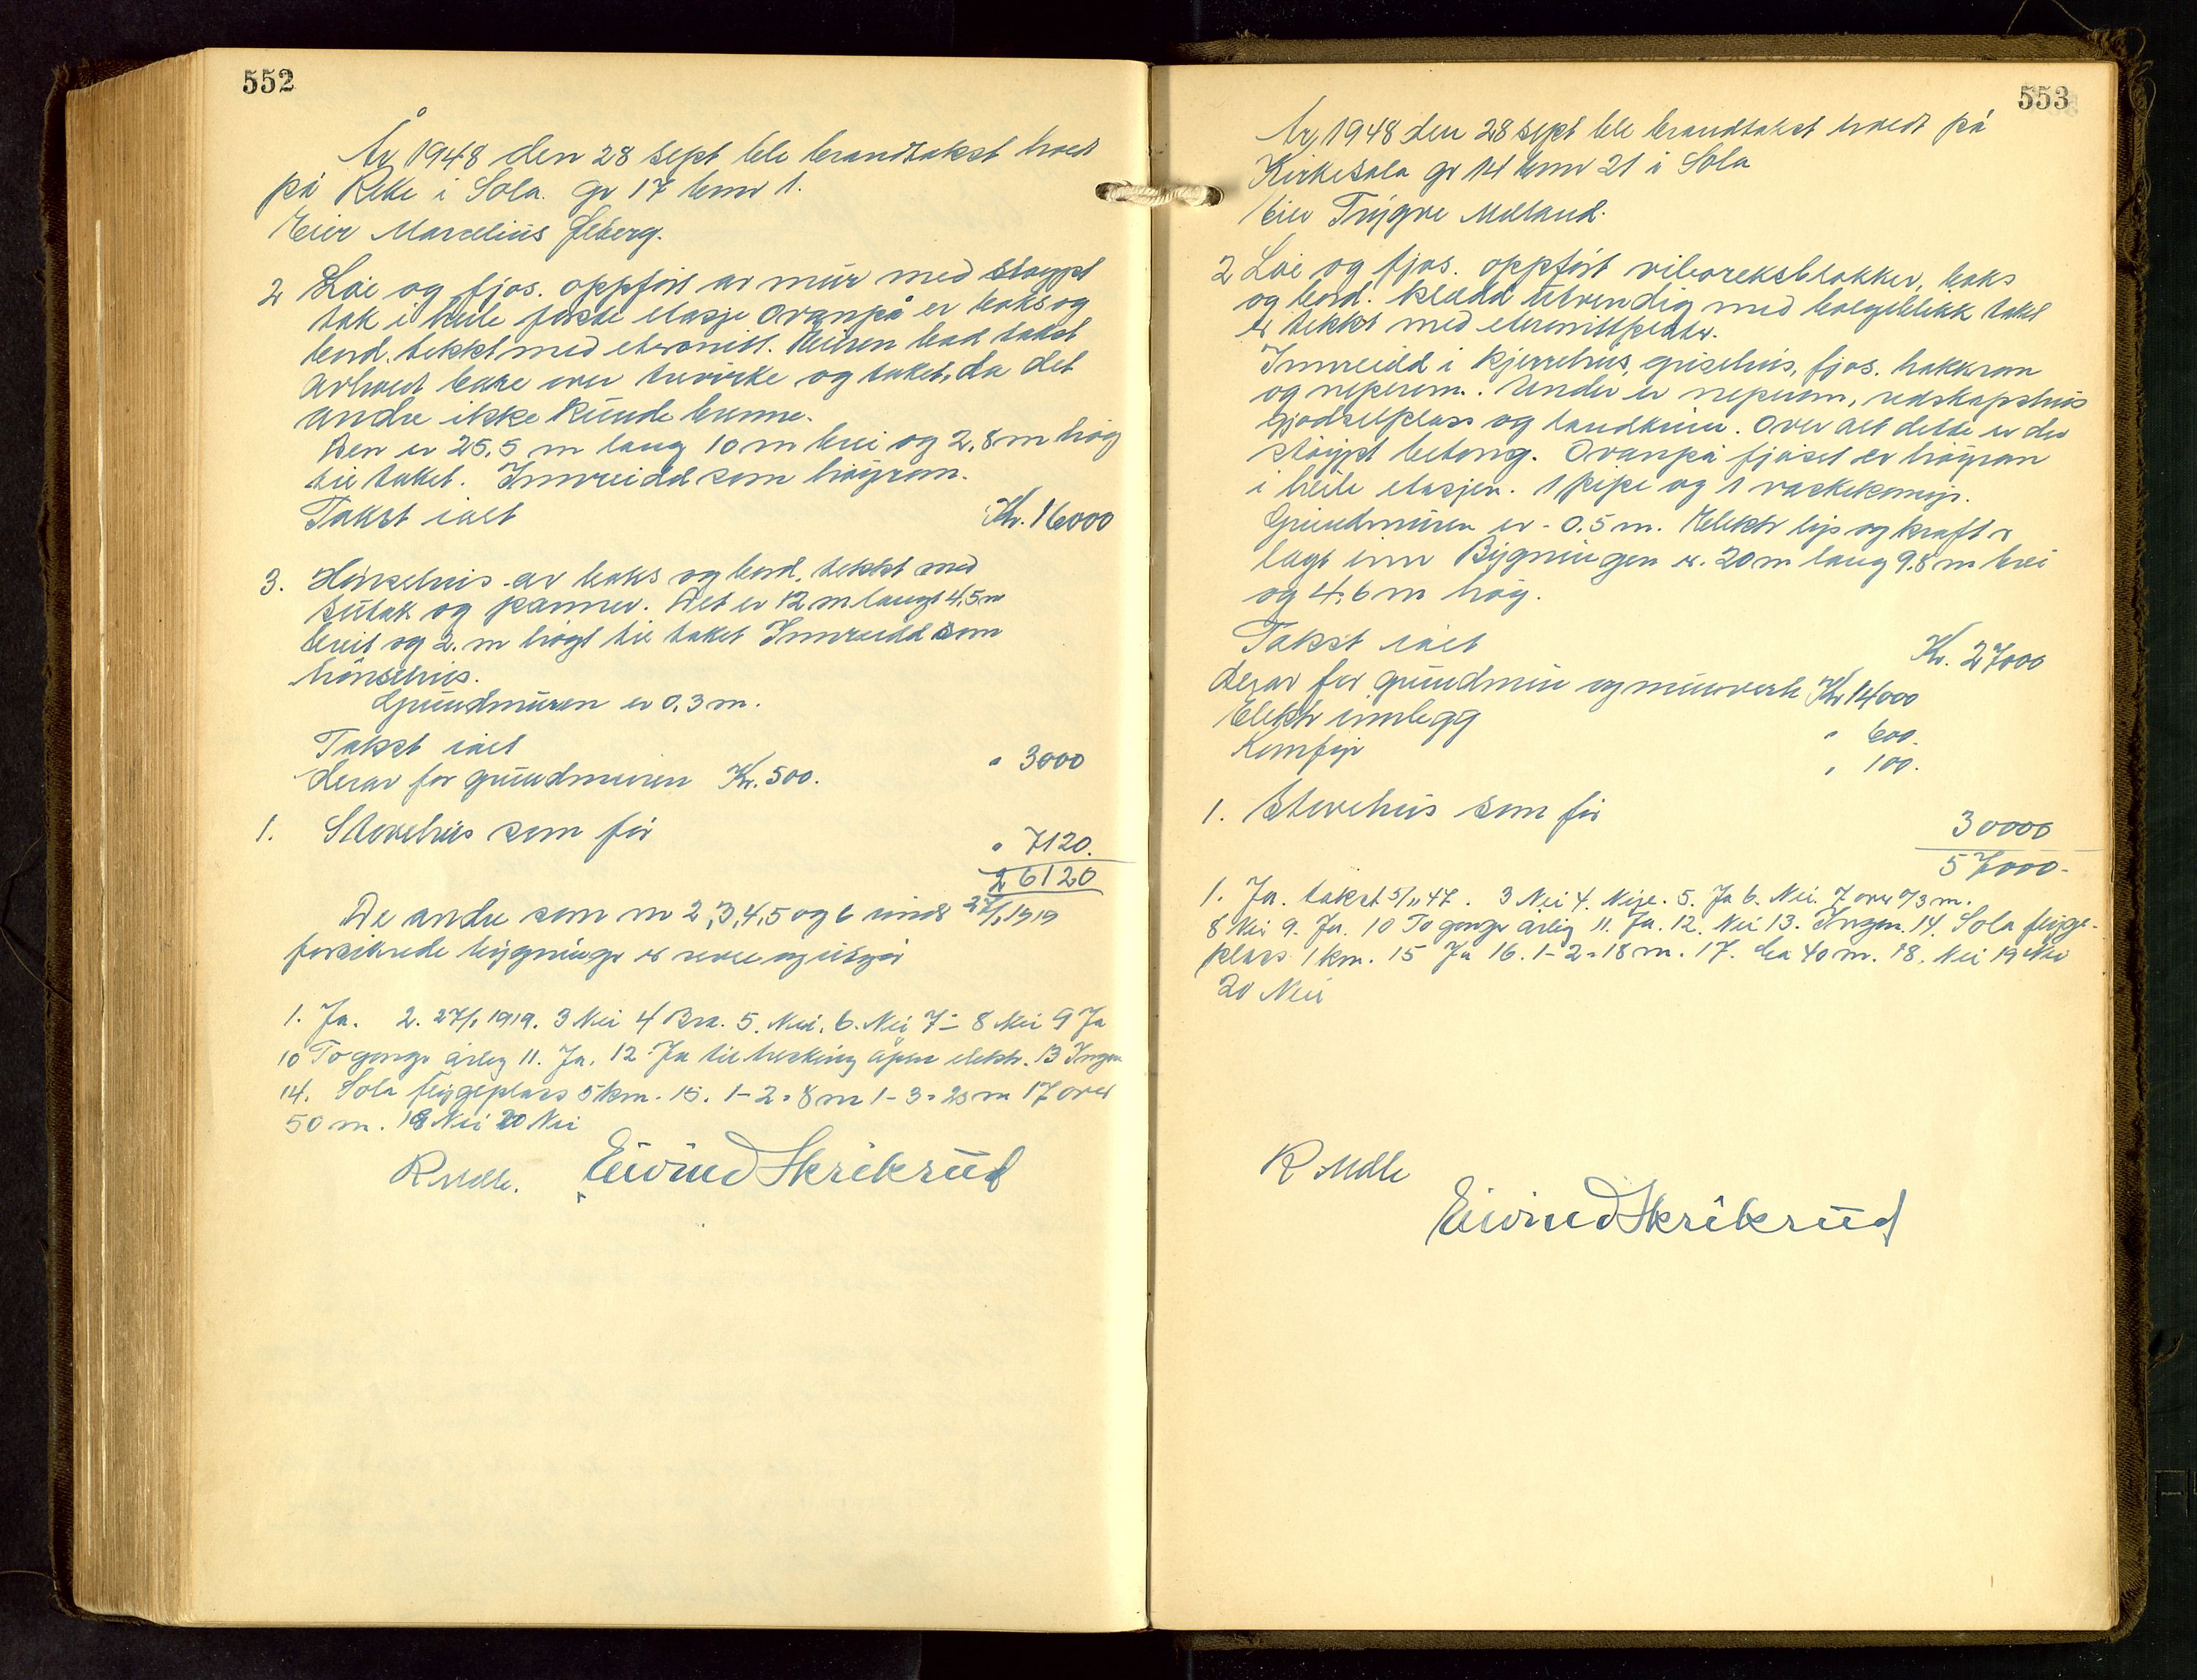 552
År 1948 den 28 sept ble branntakst holdt
på Rege i Sola. gr 17 bnr 1.
Eier Marcelius
2 Løe og fjos. oppført av mur med støypt
tak i heile første etasje Ovanpå er boks og
bord. tekkt med eternitt. Heiren bad takst
avholdt bare over trevirke og taket, da det
andre ikke kunde brenne.
Den er 25,5 m lang 10 m brei og 2,8 m høg
til taket. Innreidd som høyrom.
Takst ialt Kr. 16000
3. Hönsehus av boks og bord. tekkt med
sutak og panner. Det er 12 m langt 4,5 m
breit og 2. m högt til taket Innreidd som
hönsehus.
Grundmuren er 0.3 m.
Takst ialt " 3000
derav for grundmuren Kr. 500.
1. Storehus som för " 7120.
26120
De andre som nr 2,3,4,5 og 6 under 27/1 1919
forsikrede bygninger er revne og utgår
1. Ja. 2. 27/1 1919. 3 Nei 4 Bra. 5. Nei. 6. Nei 7 - 8 Nei 9 Ja
10 To gonger årleg 11. Ja. 12. Ja til tresking åpen elektr. 13 Ingen
14. Sola flygeplass 5 km. 15. 1-2 = 8 m 1-3 = 25 m 17 over
50 m. 18 Nei 20 Nei
R Melle. Eivind Skrikrud
553
År 1948 den 28 sept ble branntakst holdt på
Kirkesola gr 14 bnr 21 i Sola
Eier Trygve Melland.
2 Løe og fjos. oppført viboreksblokker, boks
og bord. kledd utvendig med bølgeblekk taket
er tekkt med eternittplater.
Innreidd i kjerrehus, grisehus, fjos. hakkrom
og neperom. Under er neperom, redskapshus
gjødselplass og landkum. Over alt dette er der
støypt betong. Ovanpå fjoset er høyrom
i heile etasjen. 1 pipe og 1 vaskekomfyr.
Grundmuren er - 0.5 m. Elektr lys og kraft er
lagt inn Bygningen er. 20 m lang 9.8 m brei
og 4,6 m høg.
Takst ialt Kr. 27000
derav for grundmur og murverk Kr 14000
Elektr innlegg " 600.
Komfyr " 100.
1. Storehus som før 30000
57000-
1. Ja. takst 5/11 47. 3 Nei 4. Nye. 5. Ja 6. Nei. 7 over 0/3 m.
8 Nei 9. Ja. 10 To gonger årleg 11. Ja. 12. Nei 13. Ingen. 14. Sola flyge-
plass 1 km. 15 Ja 16. 1-2 = 18 m. 17. ca 40 m. 18. Nei 19 Nei
20 Nei
R Melle
Eivind Skrikrud